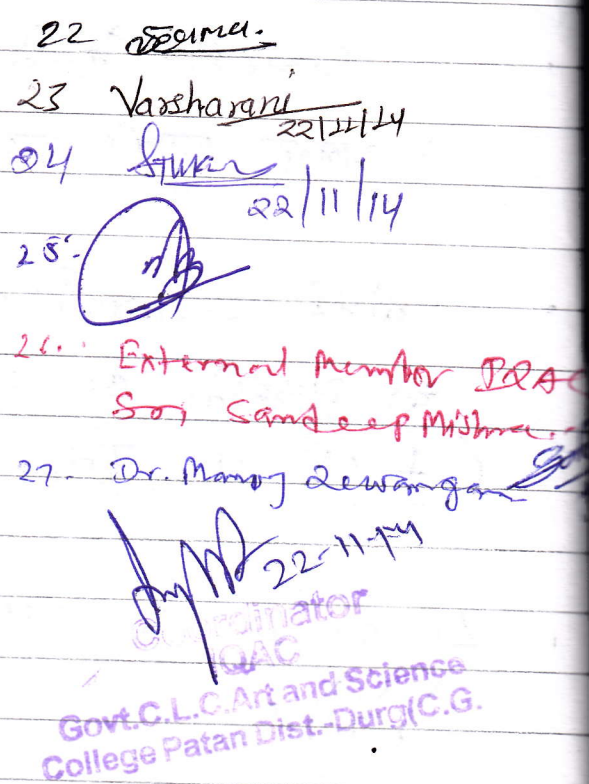 22
23 Varsharani
22/11/14
24
22/11/14
25.
26. External Member IQAC
Sri Sandeep Mishra.
27. Dr. Manoj Dewangan
22-11-14
Coordinator
IQAC
Govt.C.L.C.Art and Science
College Patan Dist.-Durg(C.G.